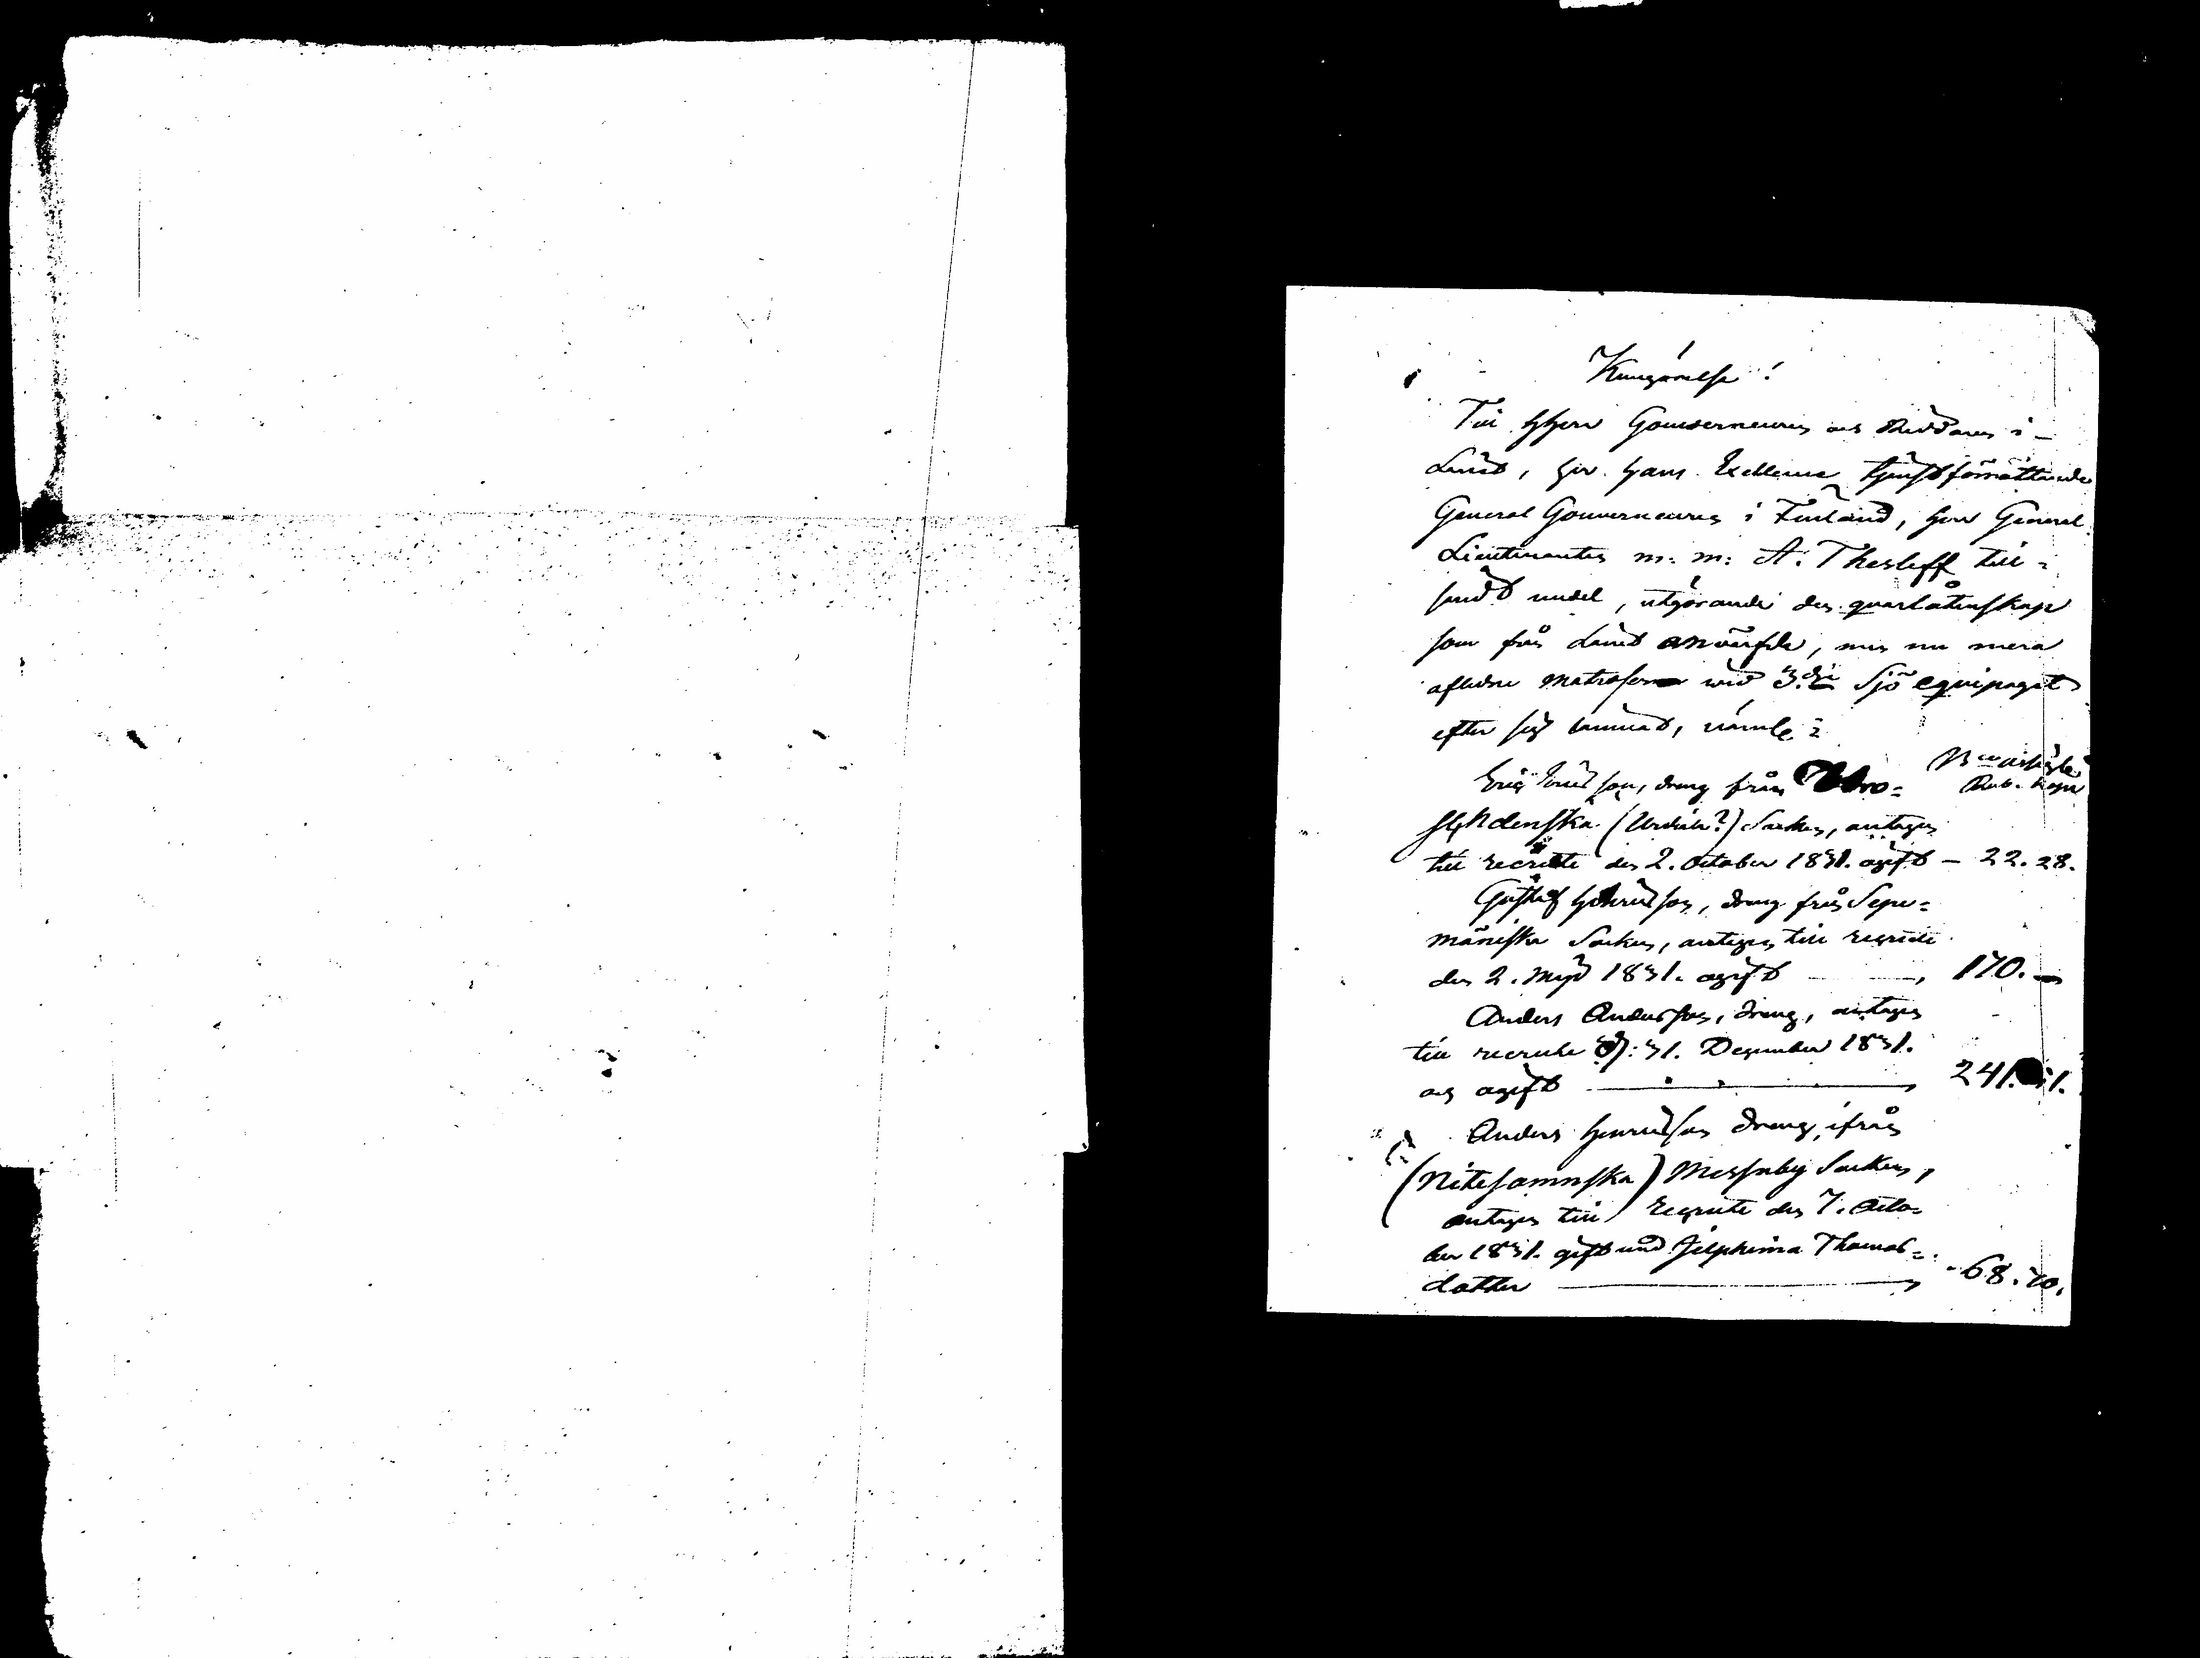 Kungörelse!
Till Herr Gouverneuren och Riddaren i
Länet, har hans Excellence tjenstförrättande
General Gouverneuren i Finland, herr General
Lieutenanten m: m: A: Thesleff till-
sändt medel, utgörande den qvarlåtenskap
som från Länet anvärfde, men nu mera
aflidne matroserna wid 3:dje Sjö equipaget
efter sig lämnat, nämle:
B:co Assign:
Rub. Kop:
Eric Ericsson, dräng från
(Urdiala?) Socken, antagen
till recrute den 2. October 1831. ogift — 22. 28.
Gustaf Henricsson, dräng från
Socken, antagen till recrute
den 2. 1831. ogift — 170. —
Anders Andersson, dräng, antagen
till recrute d: 31. December 1831.
och ogift — 241.
Anders Henricsson dräng, ifrån
Messuby Socken,
antagen till recrute den 7. Octo-
ber 1831. gift med Thomas-
dotter — 68. 70.